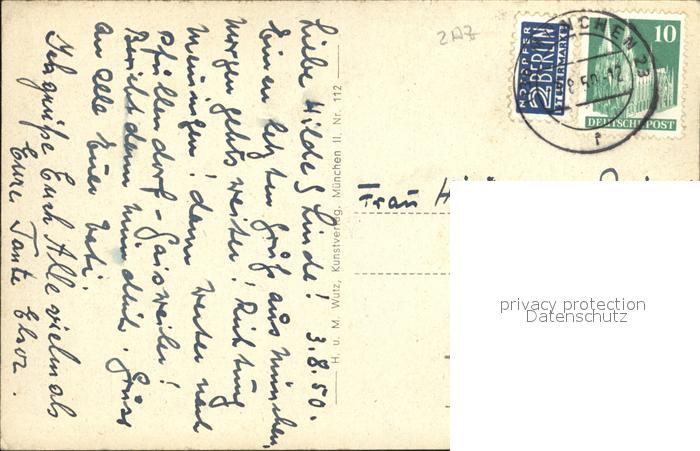 Liebe Hilde & Linde! 3.8.50.
Einen letzten Gruß aus München,
morgen gehts weiter! Richtung
Meiningen! dann weiter nach
Pfullendorf - Gaisweiler!
Bericht dann mündlich. Grüss
an alle Euer
Ich grüße Euch Alle vielmals
Eure Tante Elsa.
H. u. M. Wutz, Kunstverlag, München II. Nr. 112
2AZ
NOTOPFER
2 BERLIN
STEUERMARKE
MÜNCHEN 23
8.50.-12
f
10
DEUTSCHE POST
Frau
privacy protection
Datenschutz